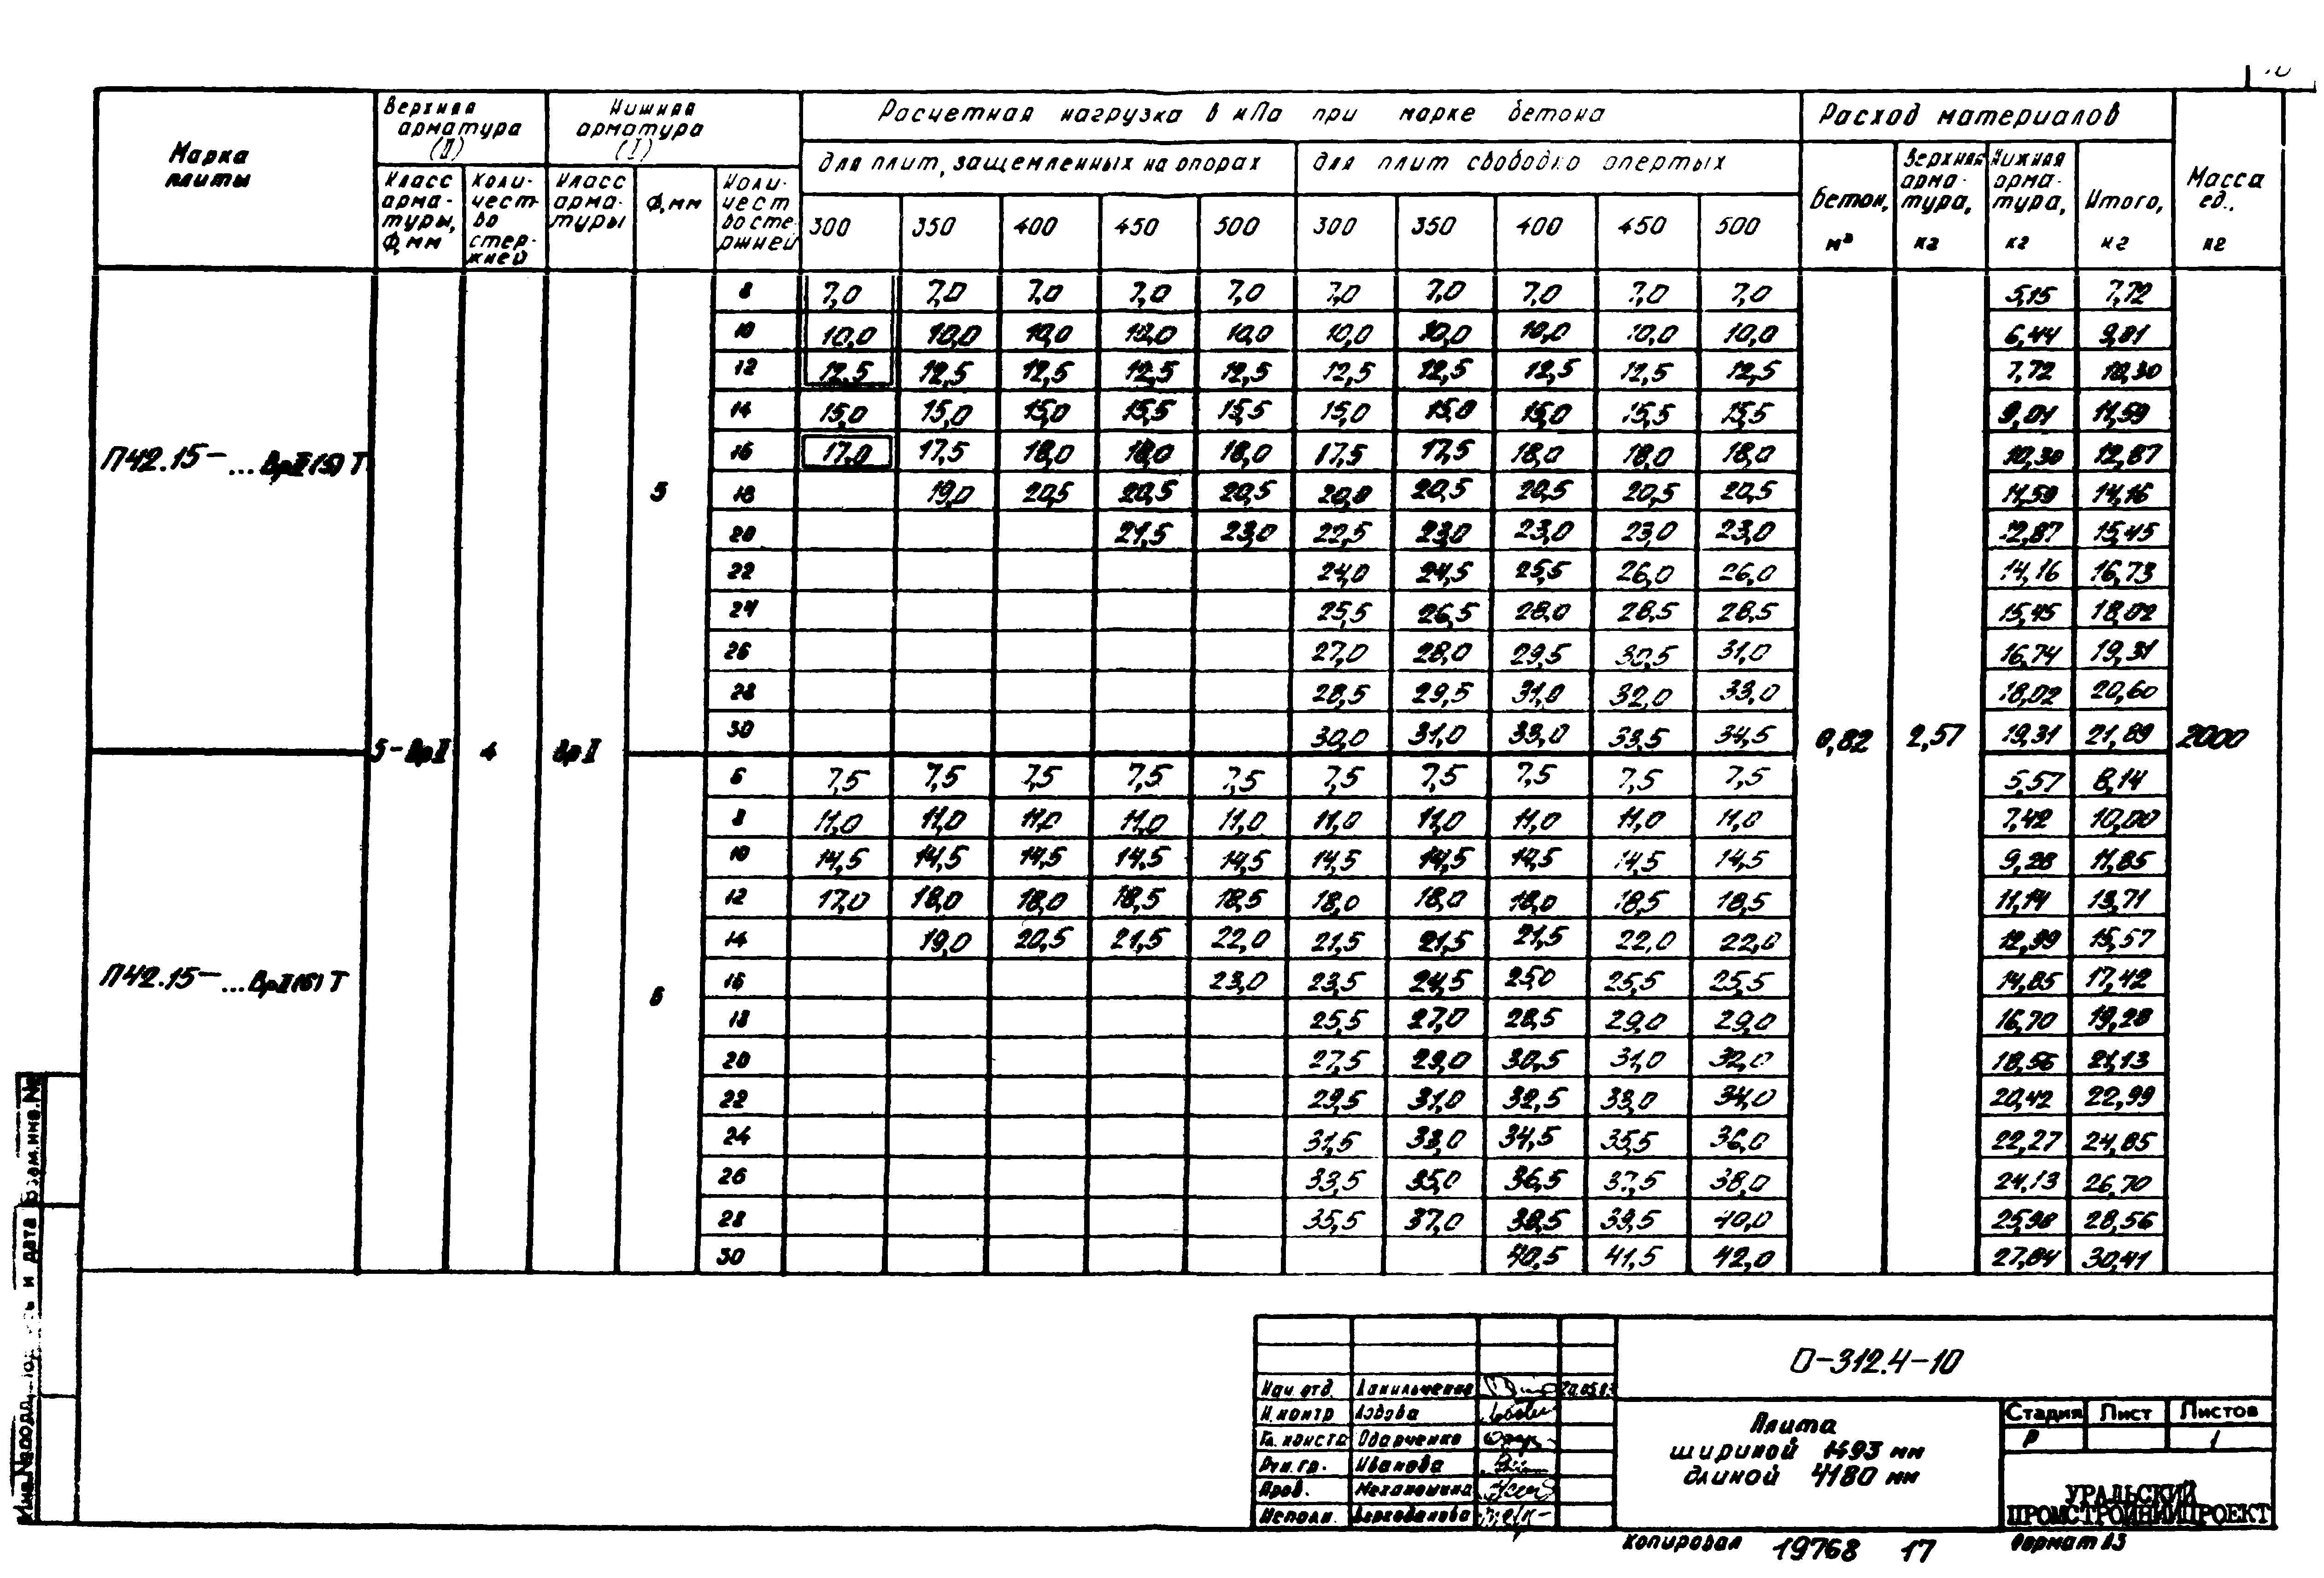 Марка плиты
Верхняя арматура (II)
Нижняя арматура (I)
Расчетная нагрузка в кПа при марке бетона
Расход материалов
Масса ед., кг
Класс арматуры, Ф, мм
Количество стержней
Класс арматуры
Ф, мм
Количест во стержней
для плит, защемленных на опорах
для плит свободно опертых
бетон, м³
Верхняя арматура, кг
Нижняя арматура, кг
Итого, кг
300 350 400 450 500 300 350 400 450 500
8 7,0 7,0 7,0 7,0 7,0 7,0 7,0 7,0 7,0 7,0 5,15 7,72
10 10,0 10,0 10,0 10,0 10,0 10,0 10,0 10,0 10,0 10,0 6,44 9,01
12 12,5 12,5 12,5 12,5 12,5 12,5 12,5 12,5 12,5 12,5 7,72 10,30
14 15,0 15,0 15,0 15,5 15,5 15,0 15,0 15,0 15,5 15,5 9,01 11,59
П42.15-...ВрII(5)Т
16 17,0 17,5 18,0 18,0 18,0 17,5 17,5 18,0 18,0 18,0 10,30 12,87
5
18 19,0 20,5 20,5 20,5 20,0 20,5 20,5 20,5 20,5 11,59 14,16
20 21,5 23,0 22,5 23,0 23,0 23,0 23,0 12,87 15,45
22 24,0 24,5 25,5 26,0 26,0 14,16 16,73
24 25,5 26,5 28,0 28,5 28,5 15,45 18,02
26 27,0 28,0 29,5 30,5 31,0 16,74 19,31
28 28,5 29,5 31,0 32,0 33,0 18,02 20,60
30 30,0 31,0 33,0 33,5 34,5 19,31 21,89
5-ВрII 4 ВрII 0,82 2,57 2000
6 7,5 7,5 7,5 7,5 7,5 7,5 7,5 7,5 7,5 7,5 5,57 8,14
8 11,0 11,0 11,0 11,0 11,0 11,0 11,0 11,0 11,0 11,0 7,42 10,00
10 14,5 14,5 14,5 14,5 14,5 14,5 14,5 14,5 14,5 14,5 9,28 11,85
12 17,0 18,0 18,0 18,5 18,5 18,0 18,0 18,0 18,5 18,5 11,14 13,71
14 19,0 20,5 21,5 22,0 21,5 21,5 21,5 22,0 22,0 12,99 15,57
П42.15-...ВрII(6)Т
16 23,0 23,5 24,5 25,0 25,5 25,5 14,85 17,42
6
18 25,5 27,0 28,5 29,0 29,0 16,70 19,28
20 27,5 29,0 30,5 31,0 32,0 18,56 21,13
22 29,5 31,0 32,5 33,0 34,0 20,42 22,99
24 31,5 33,0 34,5 35,5 36,0 22,27 24,85
26 33,5 35,0 36,5 37,5 38,0 24,13 26,70
28 35,5 37,0 38,5 39,5 40,0 25,98 28,56
30 40,5 41,5 42,0 27,84 30,41
Взам.инв.№
и дата
Инв.№подл.
О-312.4-10
Нач. отд. Данильченко
Н.контр
Гл. констр Одарченко
Рук.гр. Иванова
Пров.
Исполн.
Плита
шириной 1493 мм
длиной 4180 мм
Стадия Лист Листов
Р 1
УРАЛЬСКИЙ
ПРОМСТРОЙНИИПРОЕКТ
Копировал 19768 17
Формат А3